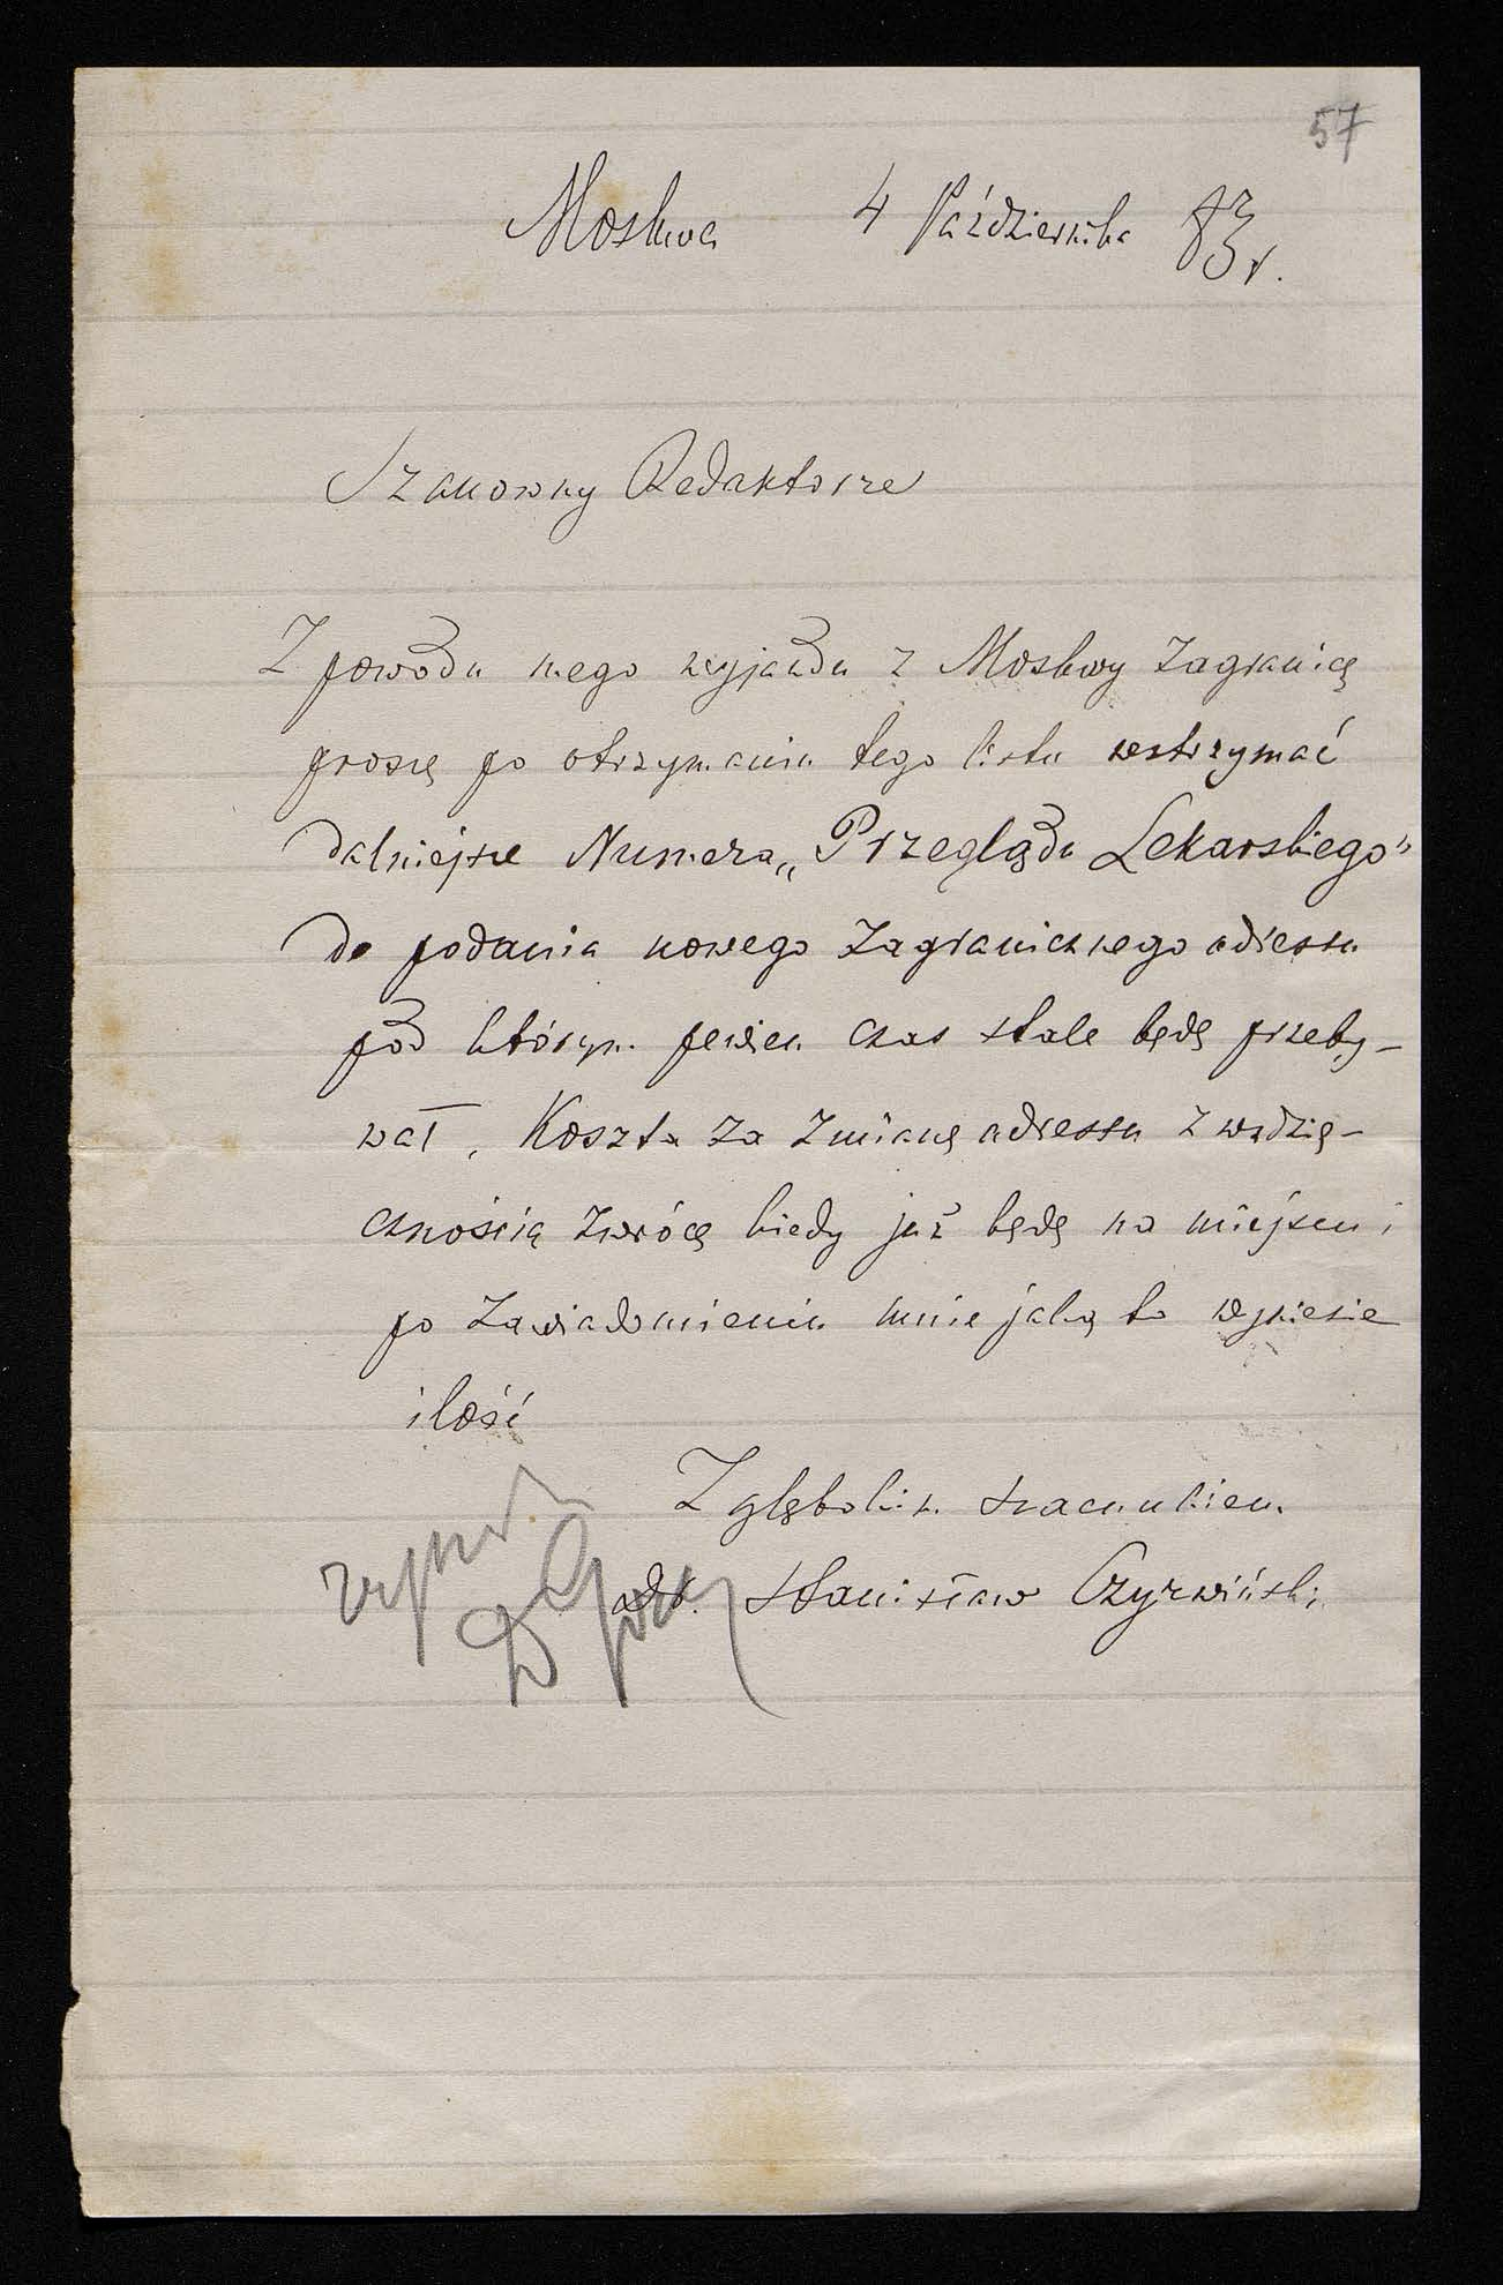 57
Moskwa 4 Października 83 r.
Szanowny Redaktorze
Z powodu mego wyjazdu z Moskwy zagranicę
proszę po otrzymaniu tego listu wstrzymać
dalniejsze Numera „Przeglądu Lekarskiego”
do podania nowego zagranicznego adressu
pod którym pewien czas stale będę przeby-
wał, Koszta za zmianę adressu z wdzię-
cznością zwrócę kiedy już będę na miejscu i
po zawiadomieniu mnie jaką to wyniesie
ilość
Z głębokim szacunkiem
Dr. Stanisław Czyrwiński